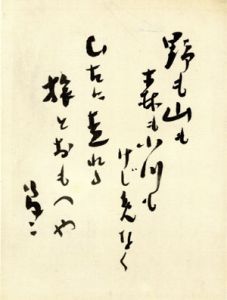 野も山も
森も小川も
けじめなく
ひたに走れる
旅とおもへや